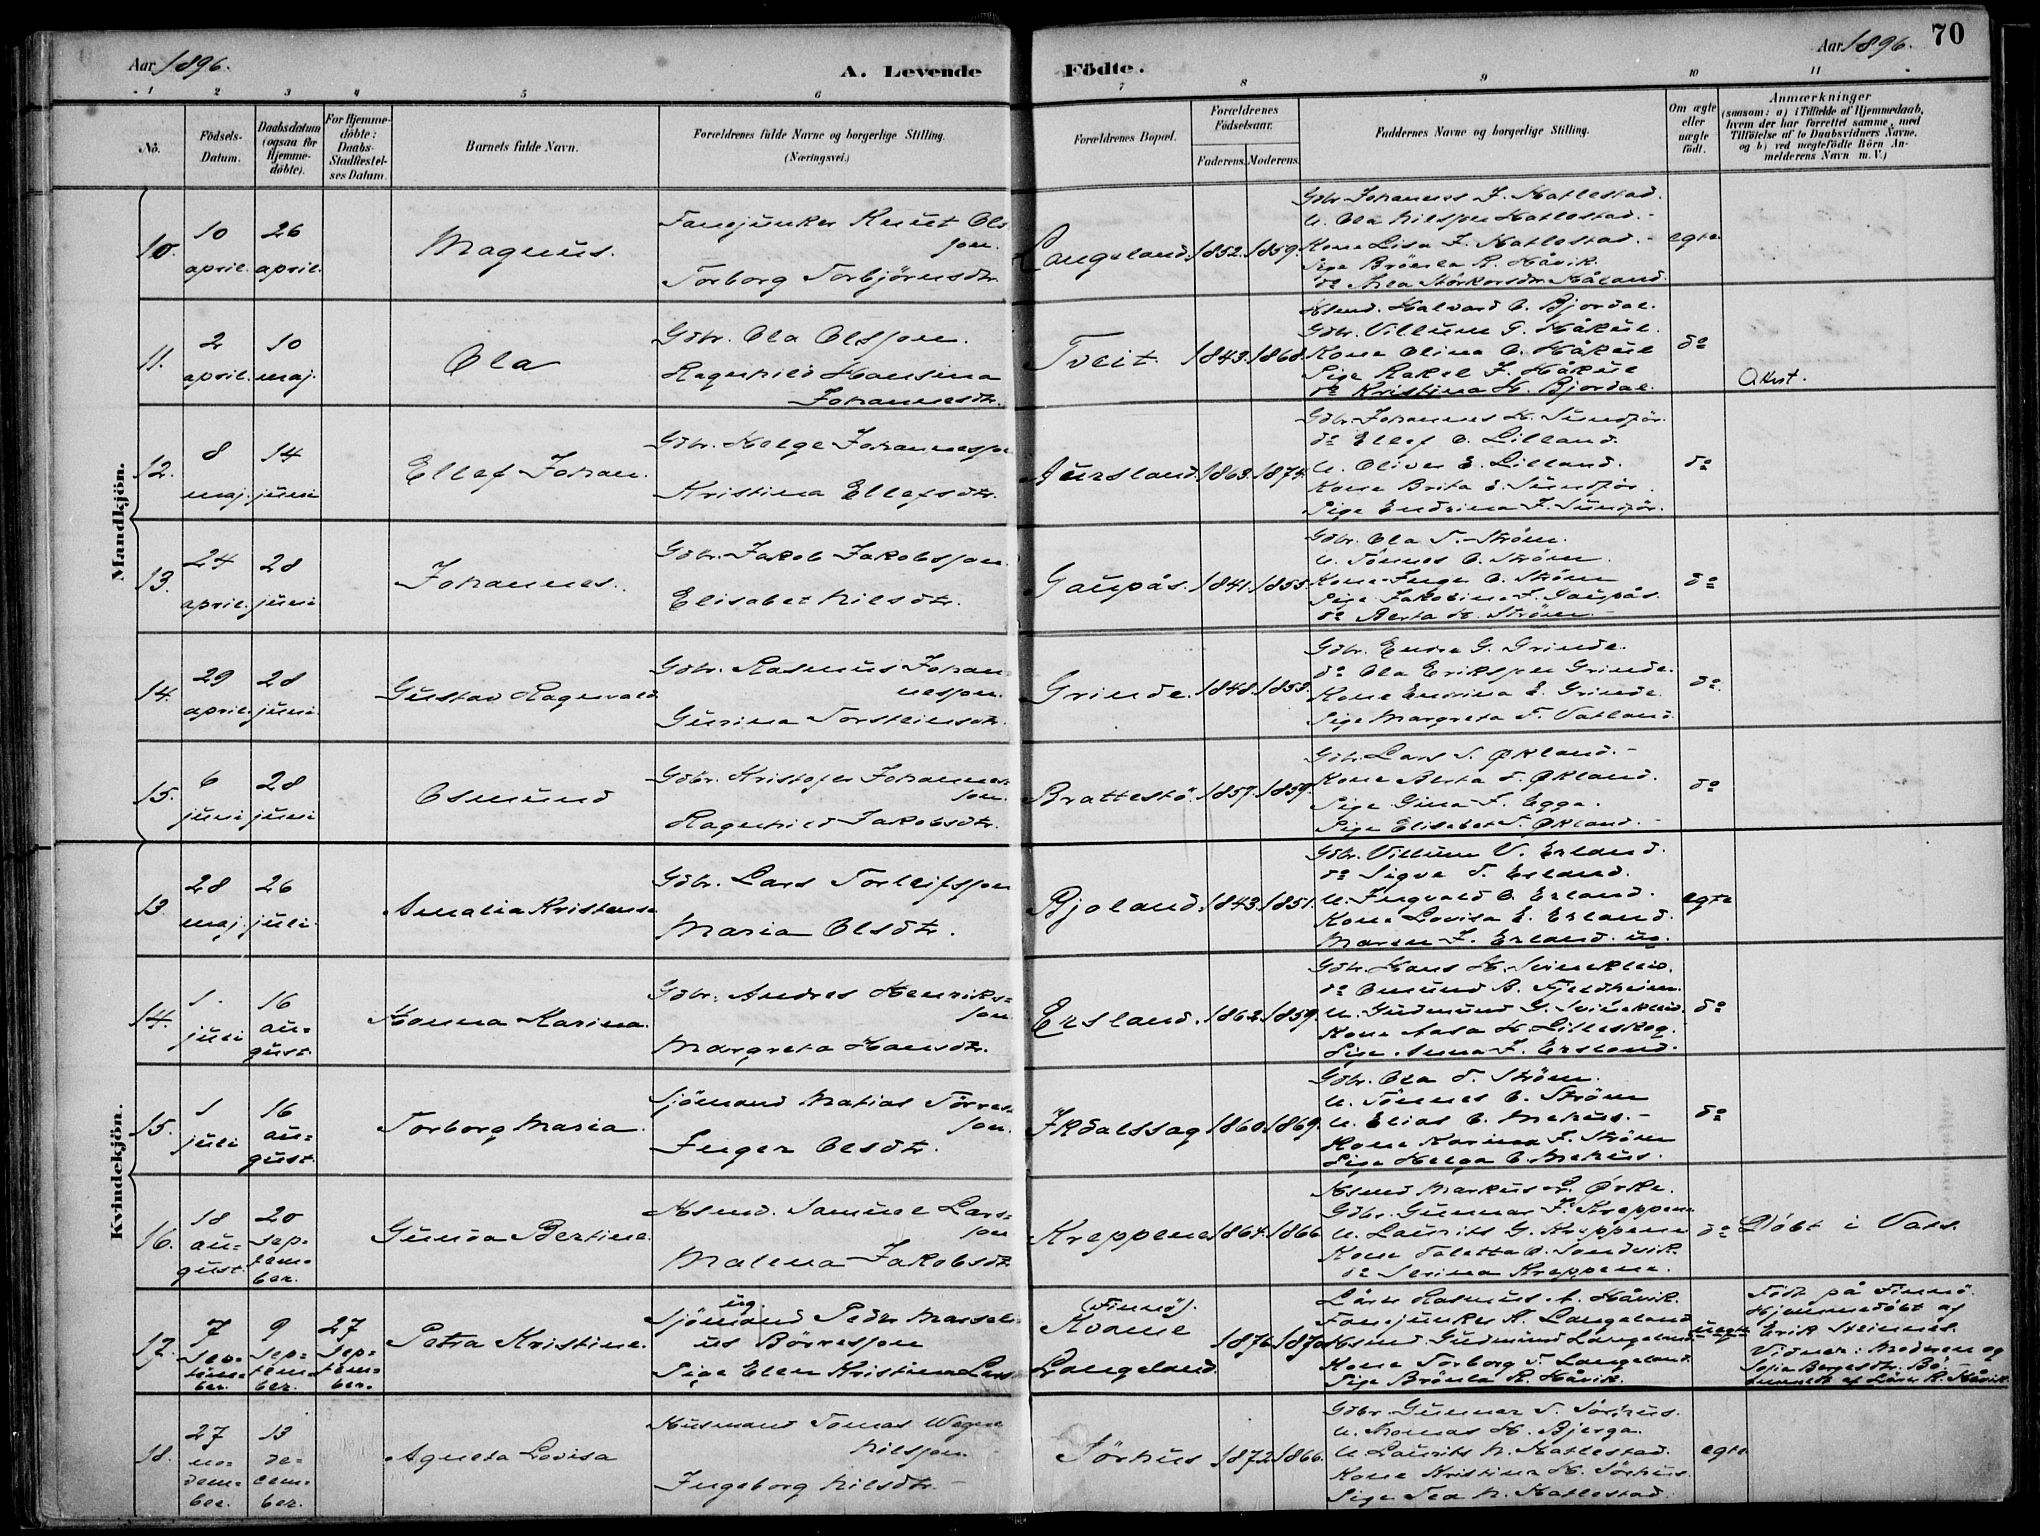 Aar 1896.
A. Levende Födte.
Aar 1896.
70
1 2 3 4 5 6 7 8 9 10 11
No.
Födsels-Datum.
Daabsdatum (ogsaa for Hjemme-döbte).
For Hjemme-döbte: Daabs-Stadfæstel-ses Datum.
Barnets fulde Navn.
Forældrenes fulde Navne og borgerlige Stilling. (Næringsvei.)
Forældrenes Bopæl.
Forældrenes Födselsaar.
Faderens. Moderens.
Faddernes Navne og borgerlige Stilling.
Om ægte eller uægte födt.
Anmærkninger
(saasom: a) i Tilfælde af Hjemmedaab, hvem der har forrettet samme, med Tilföielse af to Daabsvidners Navne, og b) ved uægtefödte Börn An-melderens Navn m. V.)
Mandkjön.
10. 10 april. 26 april. Magnus.
Fanejunker Knut Ols-
son.
Torborg Torbjörnsdtr.
Langeland. 1852. 1859.
Gdbr. Johannes J. Hatlestad.
U. Ola Nilssen Hatlestad.
Kone Lisa J. Hatlestad.
Pige Brönla R. Håvik
do Anea Störkorsdtr Håland.
egte
11. 2 april. 10 maj. Ola
Gdbr. Ola Olsson.
Ragnhild Hansina
Johannesdtr.
Tveit. 1843. 1868.
Hsmd. Halvard O. Bjordal.
Gdbr. Villum G. Håkul.
Kone Olina O. Håkul
Pige Rakel J. Håkul
do Kristina H. Bjordal.
do
Akst.
12. 8 maj. 14 juni Ellef Johan.
Gdbr. Helge Johannesson
Kristina Ellefsdtr.
Aursland. 1863. 1874.
Gdbr. Johannes H. Sundför.
do Ellef O. Lilland.
U. Oliver E. Lilland.
Kone Brita E. Sundför.
Pige Endrina J. Sundför.
do
13. 24 april. 28 juni Johannes.
Gdbr. Jakob Jakobsson.
Elisabet Nilsdtr.
Gaupås. 1841. 1855.
Gdbr. Ola T. Ström.
U. Tönnes O. Ström.
Kone Inger O. Ström
Pige Jakobina J. Gaupås.
do Berta H. Ström.
do
14. 29 april 28 juni. Gustav Ragnvald
Gdbr. Rasmus Johan-
nesson.
Gurina Torsteinsdtr.
Grinde. 1848. 1853.
Gdbr. Endre G. Grinde.
do Ola Eriksson Grinde.
Kone Endrina E. Grinde.
Pige Margreta T. Vatland.
do
15. 6 juni 28 juni Osmund
Gdbr. Kristofer Johannes-
son.
Ragnhild Jakobsdtr.
Brattestö. 1857. 1859.
Gdbr. Lars S. Økland.
Kone Berta T. Økland.
Pige Gina J. Egge.
Pige Elisabet T. Økland.
do
Kvindekjön.
13. 28 maj. 26 juli. Amalia Kristense
Gdbr. Lars Torleifsson
Maria Olsdtr.
Bjoland. 1843. 1851.
Gdbr. Villum V. Erland.
do Sigve T. Erland.
U. Ingvald O. Erland.
Kone Lovisa E. Erland.
Maren J. Erland. ug.
egte
14. 1. juli 16 au-gust. Hanna Karina.
Gdbr. Andres Henriks-
son.
Margreta Hansdtr.
Ersland. 1862. 1859.
Gdbr. Hans H. Svinekleiv.
do Omund B. Fjeldheim.
U. Gudmund G. Svinekleiv.
Kone Aasa H. Lilleskog.
Pige Anna J. Ersland.
do
15. 1 juli 16 au-gust. Torborg Maria.
Sjömand Matias Törres-
son.
Inger Olsdtr.
Ikdalssag 1860. 1869.
Gdbr. Ola T. Ström.
U. Tönnes O. Ström
U. Elias O. Mehus.
Kone Karina J. Ström
Pige Helga O. Mehus.
do
16. 18 au-gust. 20 sep-tem-ber. Gunda Bertine.
Hsmd. Samuel Lars-
son
Malena Jakobsdtr.
Kreppene 1864. 1866
Hsmd Markus L. Ørke.
Gdbr. Gunnar J. Kreppene
U. Laurits G. Kreppene
Kone Taletta O. Sandvik.
do Serina Kreppene.
do
Döbt i Vats.
17. 7 sep-tem-ber. 9 sep-tem-ber. 27 sep-tem-ber. Petra Kristine.
ug.
Sjömand Peder Marseli-
us Börresson
Pige Elen Kristina Lars
(Finnö).
Kvame
Langeland. 1876. 1870.
Lärer Rasmus A. Håvik.
Fanejunker K. Langeland
Hsmd. Gudmund Langeland
Kone Torborg T. Langeland.
Pige Brönla R. Håvik.
uegte
Födt på Finnö.
Hjemmedöbt af
Erik Steinnes.
Vidner: Moderen og
Sofia Bergesdtr. Bö.
Anmeldt af Lärer R. Håvik.
18. 27 no-vem-ber. 13 de-cem-ber. Agneta Lovisa
Husmand Tomas Wegne
Nilsson
Ingeborg Nilsdtr.
Sörhus 1872. 1866.
Gdbr Gunnar T. Sörhus.
U. Tomas H. Bjerga.
U Laurits N. Hatlestad.
Kone Kristina H. Sörhus.
Pige Tea N. Hatlestad.
egte